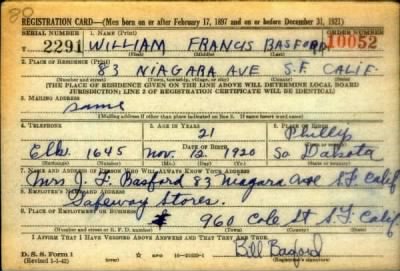 REGISTRATION CARD—(Men born on or after February 17, 1897 and on or before December 31, 1921)
SERIAL NUMBER 1. NAME (Print) ORDER NUMBER
T 2291 WILLIAM FRANCIS BASFORD 10052
2. PLACE OF RESIDENCE (Print)
83 NIAGARA AVE S.F. CALIF.
(Number and street) (Town, township, village, or city) (County) (State)
[THE PLACE OF RESIDENCE GIVEN ON THE LINE ABOVE WILL DETERMINE LOCAL BOARD
JURISDICTION; LINE 2 OF REGISTRATION CERTIFICATE WILL BE IDENTICAL]
3. MAILING ADDRESS
same
[Mailing address if other than place indicated on line 2. If same insert word same]
4. TELEPHONE 5. AGE IN YEARS 6. PLACE OF BIRTH
21 Phillip
DATE OF BIRTH
Elk. 1645 Nov. 12 1920 So Dakota
(Exchange) (Number) (Mo.) (Day) (Yr.) (State or country)
7. NAME AND ADDRESS OF PERSON WHO WILL ALWAYS KNOW YOUR ADDRESS
Mrs J. F. Basford 83 Niagara Ave S.F. Calif
8. EMPLOYER'S NAME AND ADDRESS
Safeway Stores.
9. PLACE OF EMPLOYMENT OR BUSINESS
960 Cole St S.F. Calif
(Number and street or R. F. D. number) (Town) (County) (State)
I AFFIRM THAT I HAVE VERIFIED ABOVE ANSWERS AND THAT THEY ARE TRUE.
D. S. S. Form 1
(Revised 1-1-42) Bill Basford
(Registrant's signature)